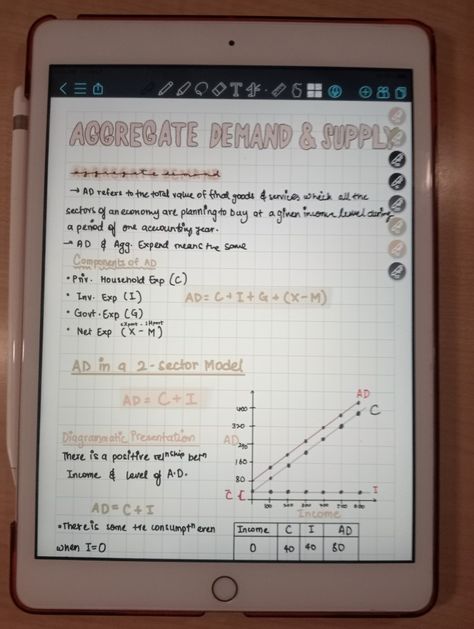 AGGREGATE DEMAND & SUPPLY
aggregate demand
→ AD refers to the total value of final goods & services which all the
sectors of an economy are planning to buy at a given income level during
a period of one accounting year.
→ AD & Agg. Expend means the same
Components of AD
• Priv. Household Exp (C)
• Inv. Exp (I)
• Govt. Exp (G)
• Net Exp (X - M)
Export - Import
AD = C + I + G + (X - M)
AD in a 2 - Sector Model
AD = C + I
Diagrammatic Presentation
There is a positive relnship betn
Income & level of A.D.
AD = C + I
• There is some +ve consumptn even
when I=0
AD
C
I
AD
400
320
160
80
C̄
Income
Income C I AD
0 40 40 80